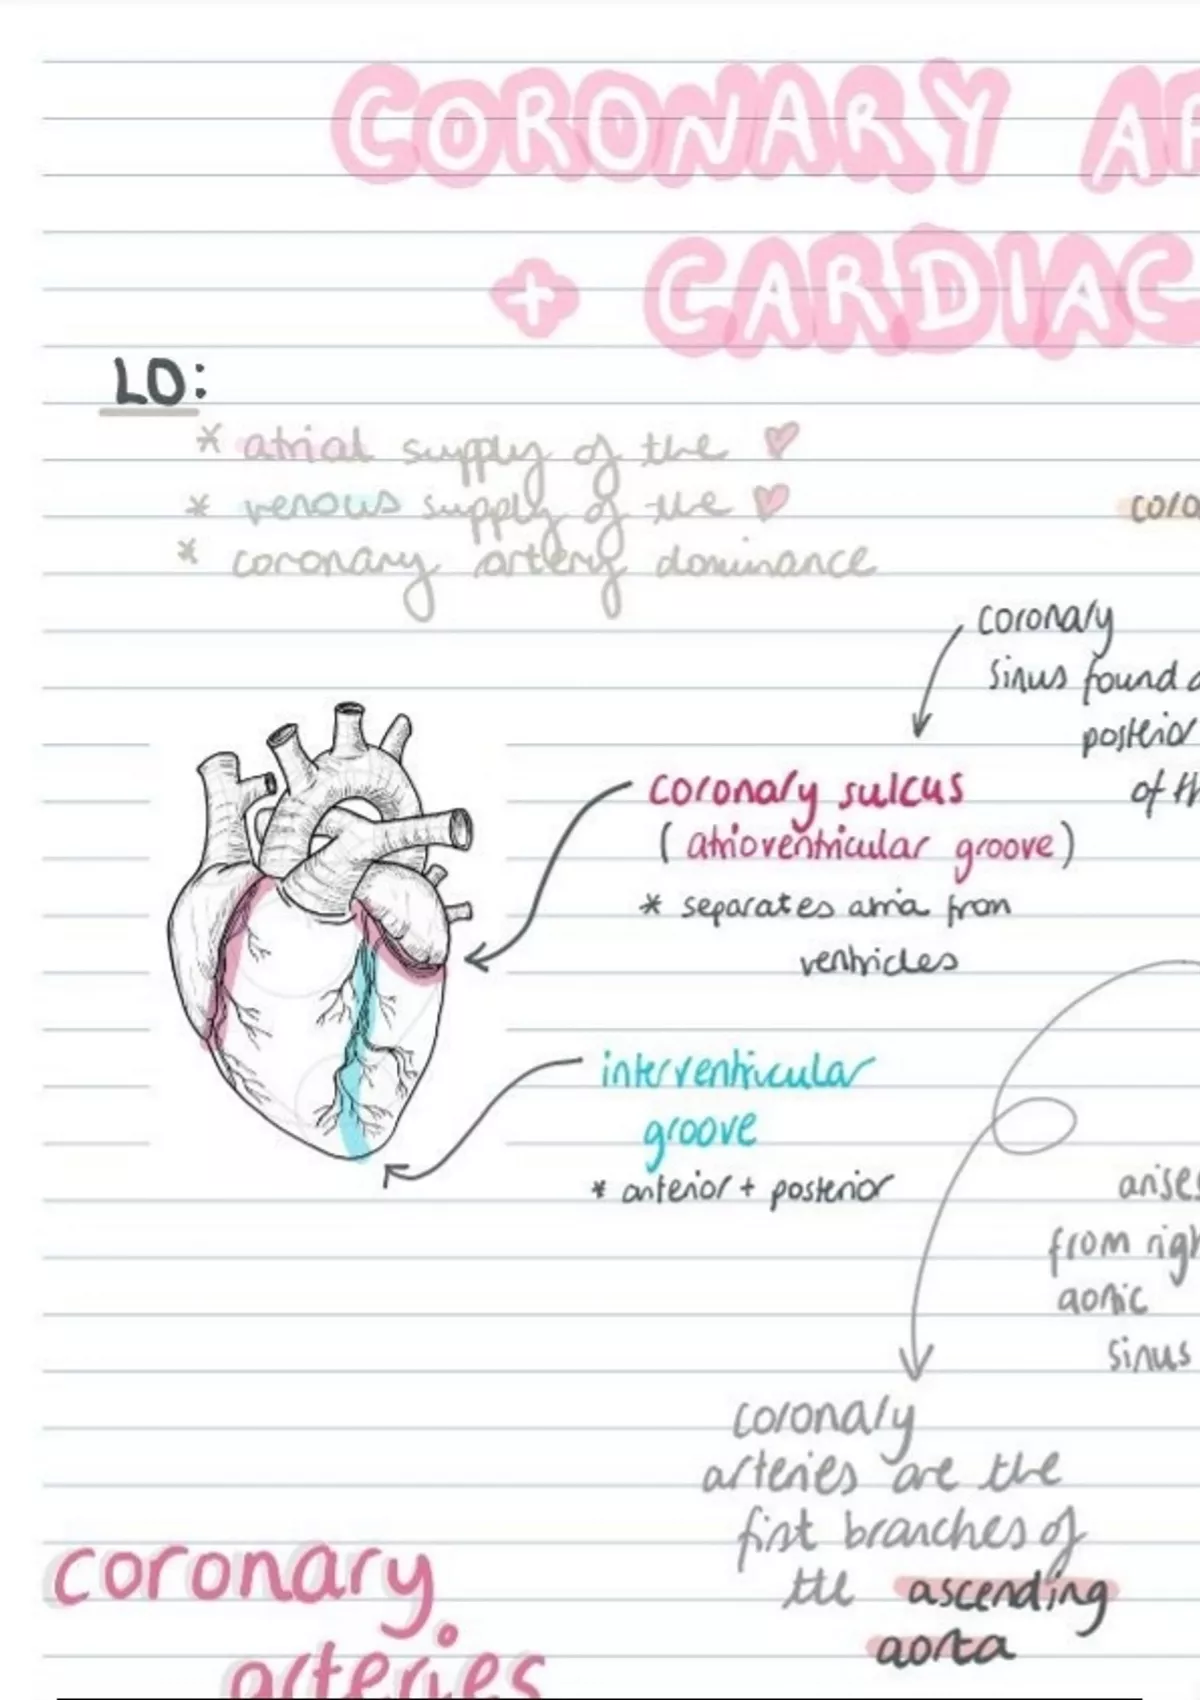 CORONARY AR
+ CARDIAC
LO:
* atrial supply of the
* venous supply of the
* coronary artery dominance
coro
coronary
sinus found
posterior
of th
coronary sulcus
(atrioventricular groove)
* separates atria from
ventricles
interventricular
groove
* anterior + posterior
arises
from righ
aortic
sinus
coronary
arteries are the
first branches of
the ascending
aorta
coronary
arteries